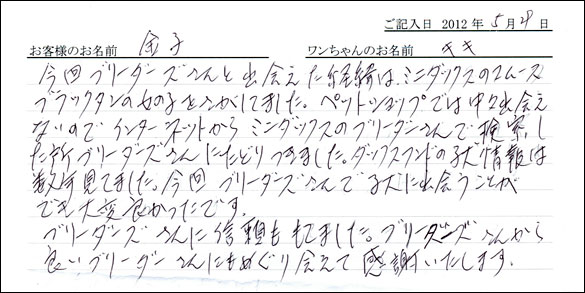 ご記入日 2012年5月29日
お客様のお名前 金子 ワンちゃんのお名前 キキ
今回ブリーダーズさんと出会えた経緯は、ミニダックスのスムース
ブラックタンの女の子をさがしてました。ペットショップでは中々出会え
ないのでインターネットからミニダックスのブリーダーさんで検索し
た所ブリーダーズさんにたどりつきました。ダックスフンドの子犬情報は
数可見てました。今回ブリーダーズさんで子犬に出会うことが
でき大変良かったです。
ブリーダーズさんに信頼ももてました。ブリーダーズさんから
良いブリーダーさんにもめぐり会えて感謝いたします。